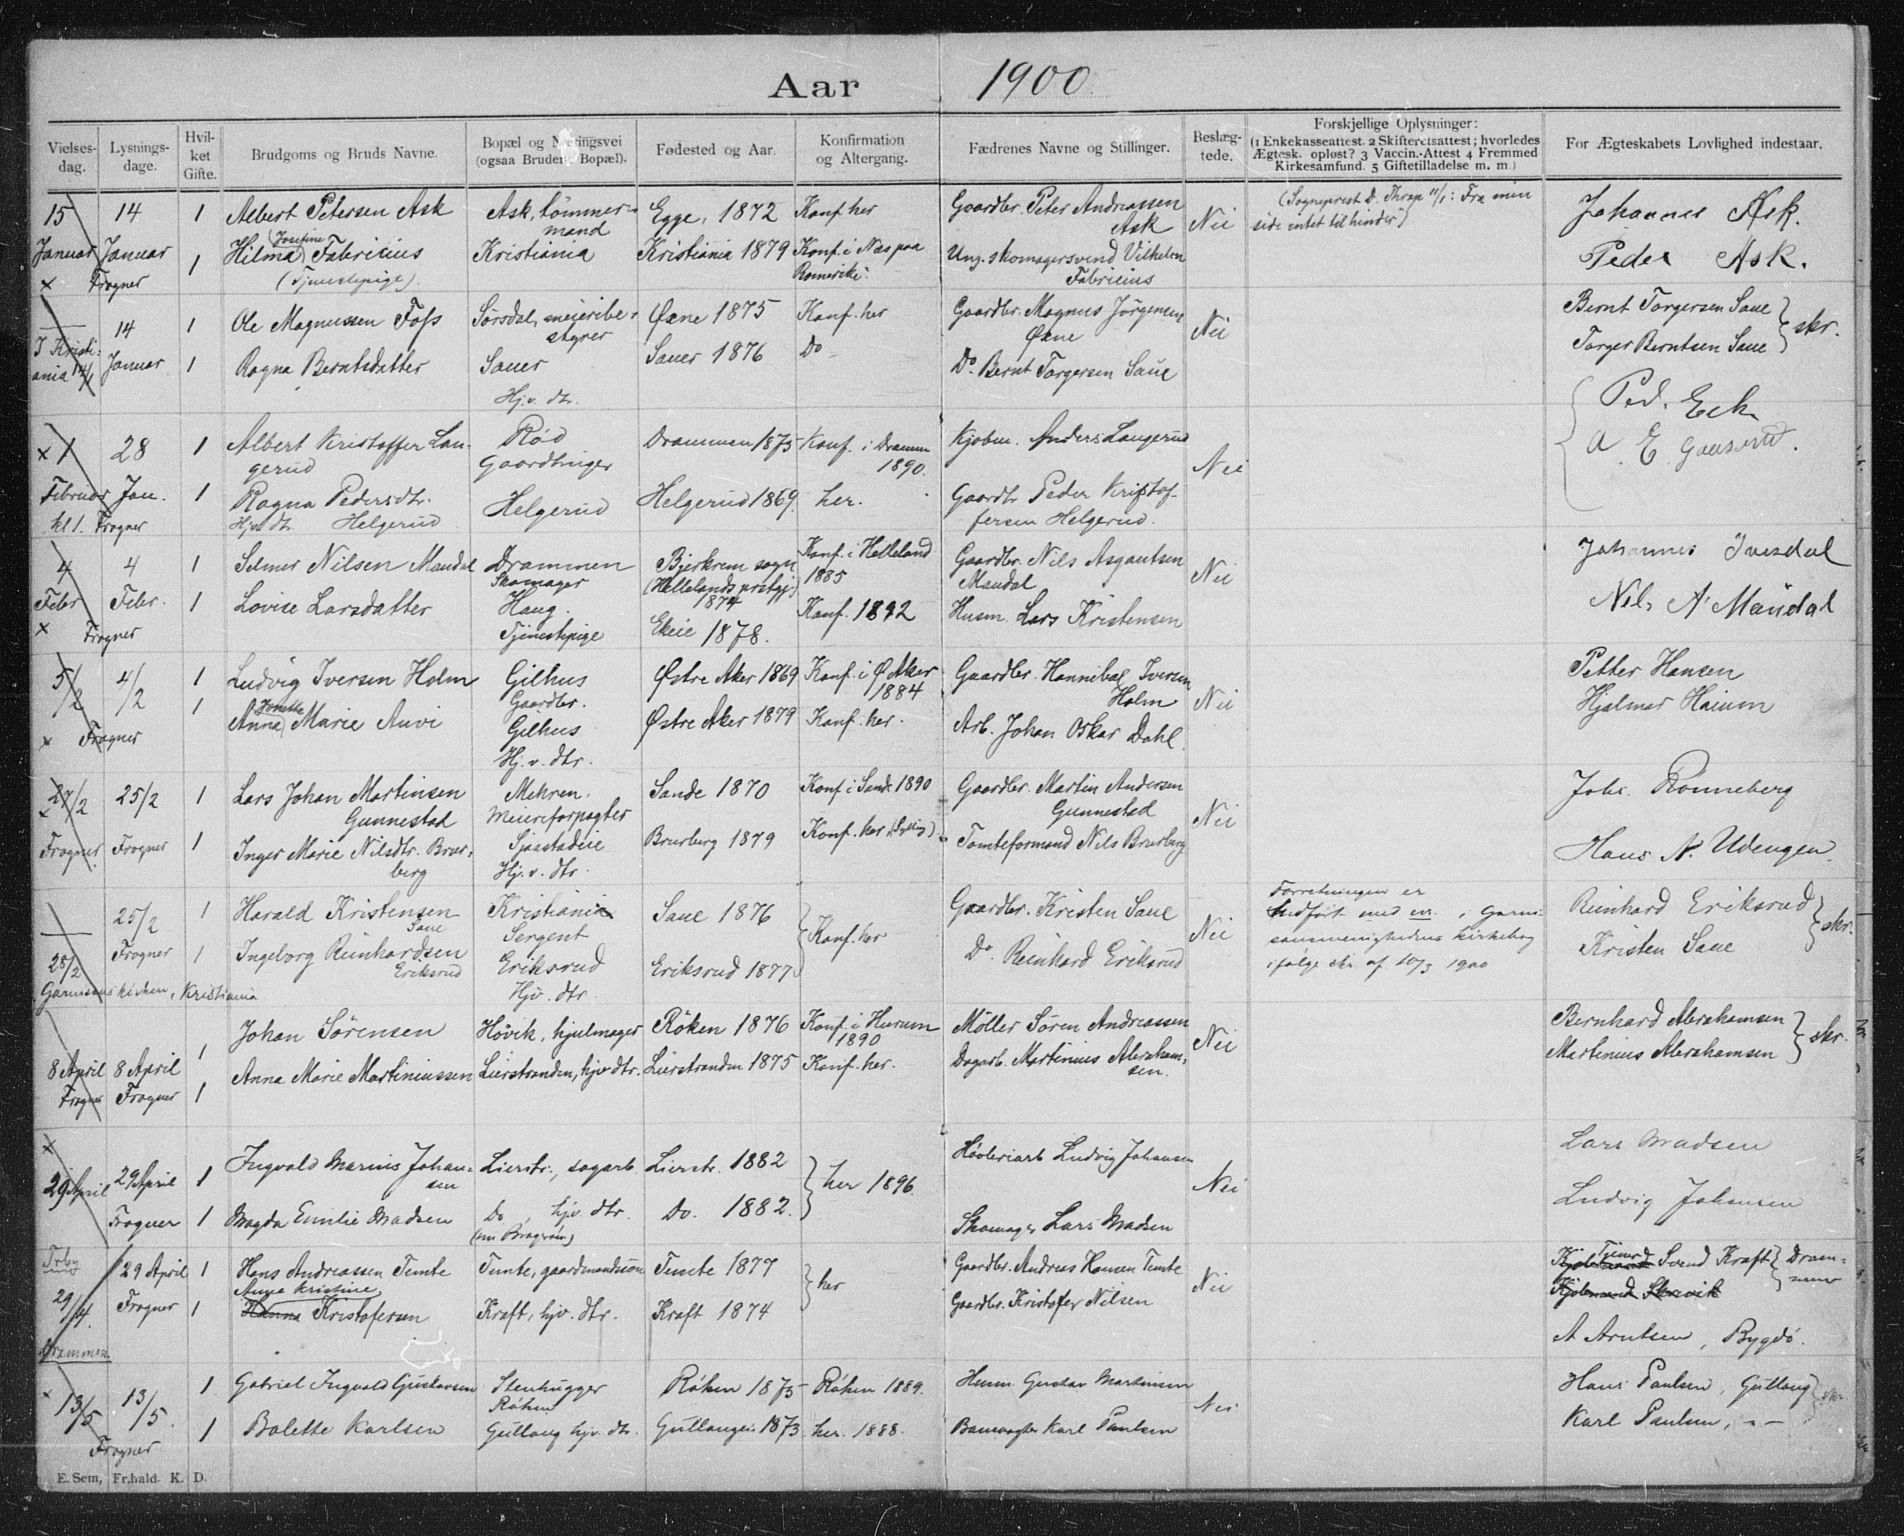 Aar 1900.
Vielses-dag. Lysnings-dage. Hvil-ket Gifte. Brudgoms og Bruds Navne. Bopæl og Næringsvei (ogsaa Brudens Bopæl). Fødested og Aar. Konfirmation og Altergang. Fædrenes Navne og Stillinger. Beslæg-tede. Forskjellige Oplysninger: (1 Enkekasseattest. 2 Skifteretsattest; hvorledes Ægtesk. opløst? 3 Vaccin.-Attest 4 Fremmed Kirkesamfund. 5 Giftetilladelse m. m.) For Ægteskabets Lovlighed indestaar.
15 14 1 Albert Petersen Ask Ask, tømmer- Egge, 1872 Konf. her Gaardbr. Peter Andreassen (Sogneprest D. Thrap 11/1: Fra min Johannes Ask.
mand Ask Nei side intet til hinder")
Januar Januar 1 Hilma Josefine Fabricius Kristiania Kristiania 1879 Konf. i Næs paa Ung. skomagersvend Vilhelm Peder Ask.
x Frogner (Tjenestepige) Romerike. Fabricius
14 1 Ole Magnussen Foss Sørsdal, meieribe- Øxne 1875 Konf. her Gaardbr. Magnus Jørgensen Bernt Torgersen Saue
styrer Øxne Nei skr.
I Kristi-ania 14/1 Januar 1 Ragna Berntsdatter Sauer Sauer 1876 Do Do. Bernt Torgersen Saue Torger Berntsen Saue
Hj.v. dtr.
x 1 28 1 Albert Kristoffer Lan- Rød Drammen 1875 Konf. i Drammen Kjøbm. Anders Langerud Ped. Eek
gerud Gaardbruger 1890. Nei A. E.
Februar Jan. 1 Ragna Pedersdtr. Helgerud Helgerud 1869. her. Gaardb. Peder Kristof-
kl 1. Frogner Hjv. dtr. Helgerud fersen Helgerud.
4 4 1 Selmer Nilsen Maudal Drammen Bjerkrem sogn Konf. i Helleland Gaardbr. Nils Asgautsen Johannes Ivesdal
Skomager (Hellelands prstgj.) 1885 Maudal Nei
Febr Febr. 1 Lovise Larsdatter Haug. 1874 Konf. 1892 Husm. Lars Kristensen Nils A. Maudal
x Frogner Tjenestepige Ekeie 1878.
5/2 4/2 1 Ludvig Iversen Holm Gilhus Østre Aker 1869 Konf. i Ø. Aker Gaardbr. Hannibal Iversen Petter Hansen
Gaardbr. 1884 Holm Nei Hjalmar
1 Anna Marie Auvi Gilhus Østre Aker 1879 Konf. her. Arb. Johan Oskar Dahl.
x Frogner Hj. v. dtr.
27/2 25/2 1 Lars Johan Martinsen Mehren. Sande 1870 Konf i Sande 1890 Gaardbr. Martin Andersen Johs. Rønneberg
x Gunnestad Meieriforpagter Gunnestad Nei
Frogner. Frogner 1 Inger Marie Nilsdtr. Brur- Sjaastadeie Brurberg 1879 Konf. her (Sylling) Tomteformand Nils Brurberg Hans N. Udengen.
berg Hj. v. dtr.
25/2 1 Harald Kristensen Kristiania Saue 1876 Gaardbr. Kristen Saue Forretningen er Reinhard Eriksrud
Saue Sergent Konf. her Nei indført med nr. i Garni- skr.
28/2 Frogner 1 Ingeborg Reinhardsen Eriksrud Eriksrud 1877 Do. Reinhard Eriksrud sonsmenighedens kirkebog Kristen Saue
Eriksrud Hjv. dtr. ifølge skr. af 10/3 1900
Garnisonskirken, Kristiania
8 April 8 April 1 Johan Sørensen Høvik, hjulmager Røken 1876 Konf. i Hurum Møller Søren Andreassen Nei Bernhard Abrahamsen
1890 skr.
Frogner Frogner 1 Anna Marie Martiniussen Lierstranden, hjv dtr. Lierstranden 1875 Konf. her. Dagarb. Martinius Abraham-sen. Martinius Abrahamsen
x
29 April 29 April 1 Ingvald Marius Johan-sen Lierstr., sagarb. Lierstr. 1882 her 1896. Høvleriarb Ludvig Johansen Nei Lars Madsen
Frogner 1 Magda Emilie Madsen Do , hjv. dtr. Do. 1882. Skomager Lars Madsen Ludvig Johansen
(nu Bragerøen)
29 April 1 Hans Andreassen Temte Temte, gaardmandssøn Temte 1877 her Gaardbr. Andreas Hansen Temte Nei Svend Kraft Dram-men
29/4. Frogner 1 Hanna Anne Kristine Kristofersen Kraft, hjv. dtr. Kraft 1874 Gaardbr. Kristofer Nilsen Kjøbmand Skrivik
Drammen. A Arntsen, Bygdø.
x 13/5 13/5. 1 Gabriel Ingvald Gustavsen Stenhugger Røken 1875 Røken 1889. Husm. Gustav Martinsen Nei Hans Paulsen, Gullaug skr.
Røken
Frogner 1 Bolette Karlsen Gullaug hjv. dtr. Gullaugei. 1873 her. 1888. Banevogter Karl Paulsen Karl Paulsen, -"-
E. Sem, Fr.hald. K. D.